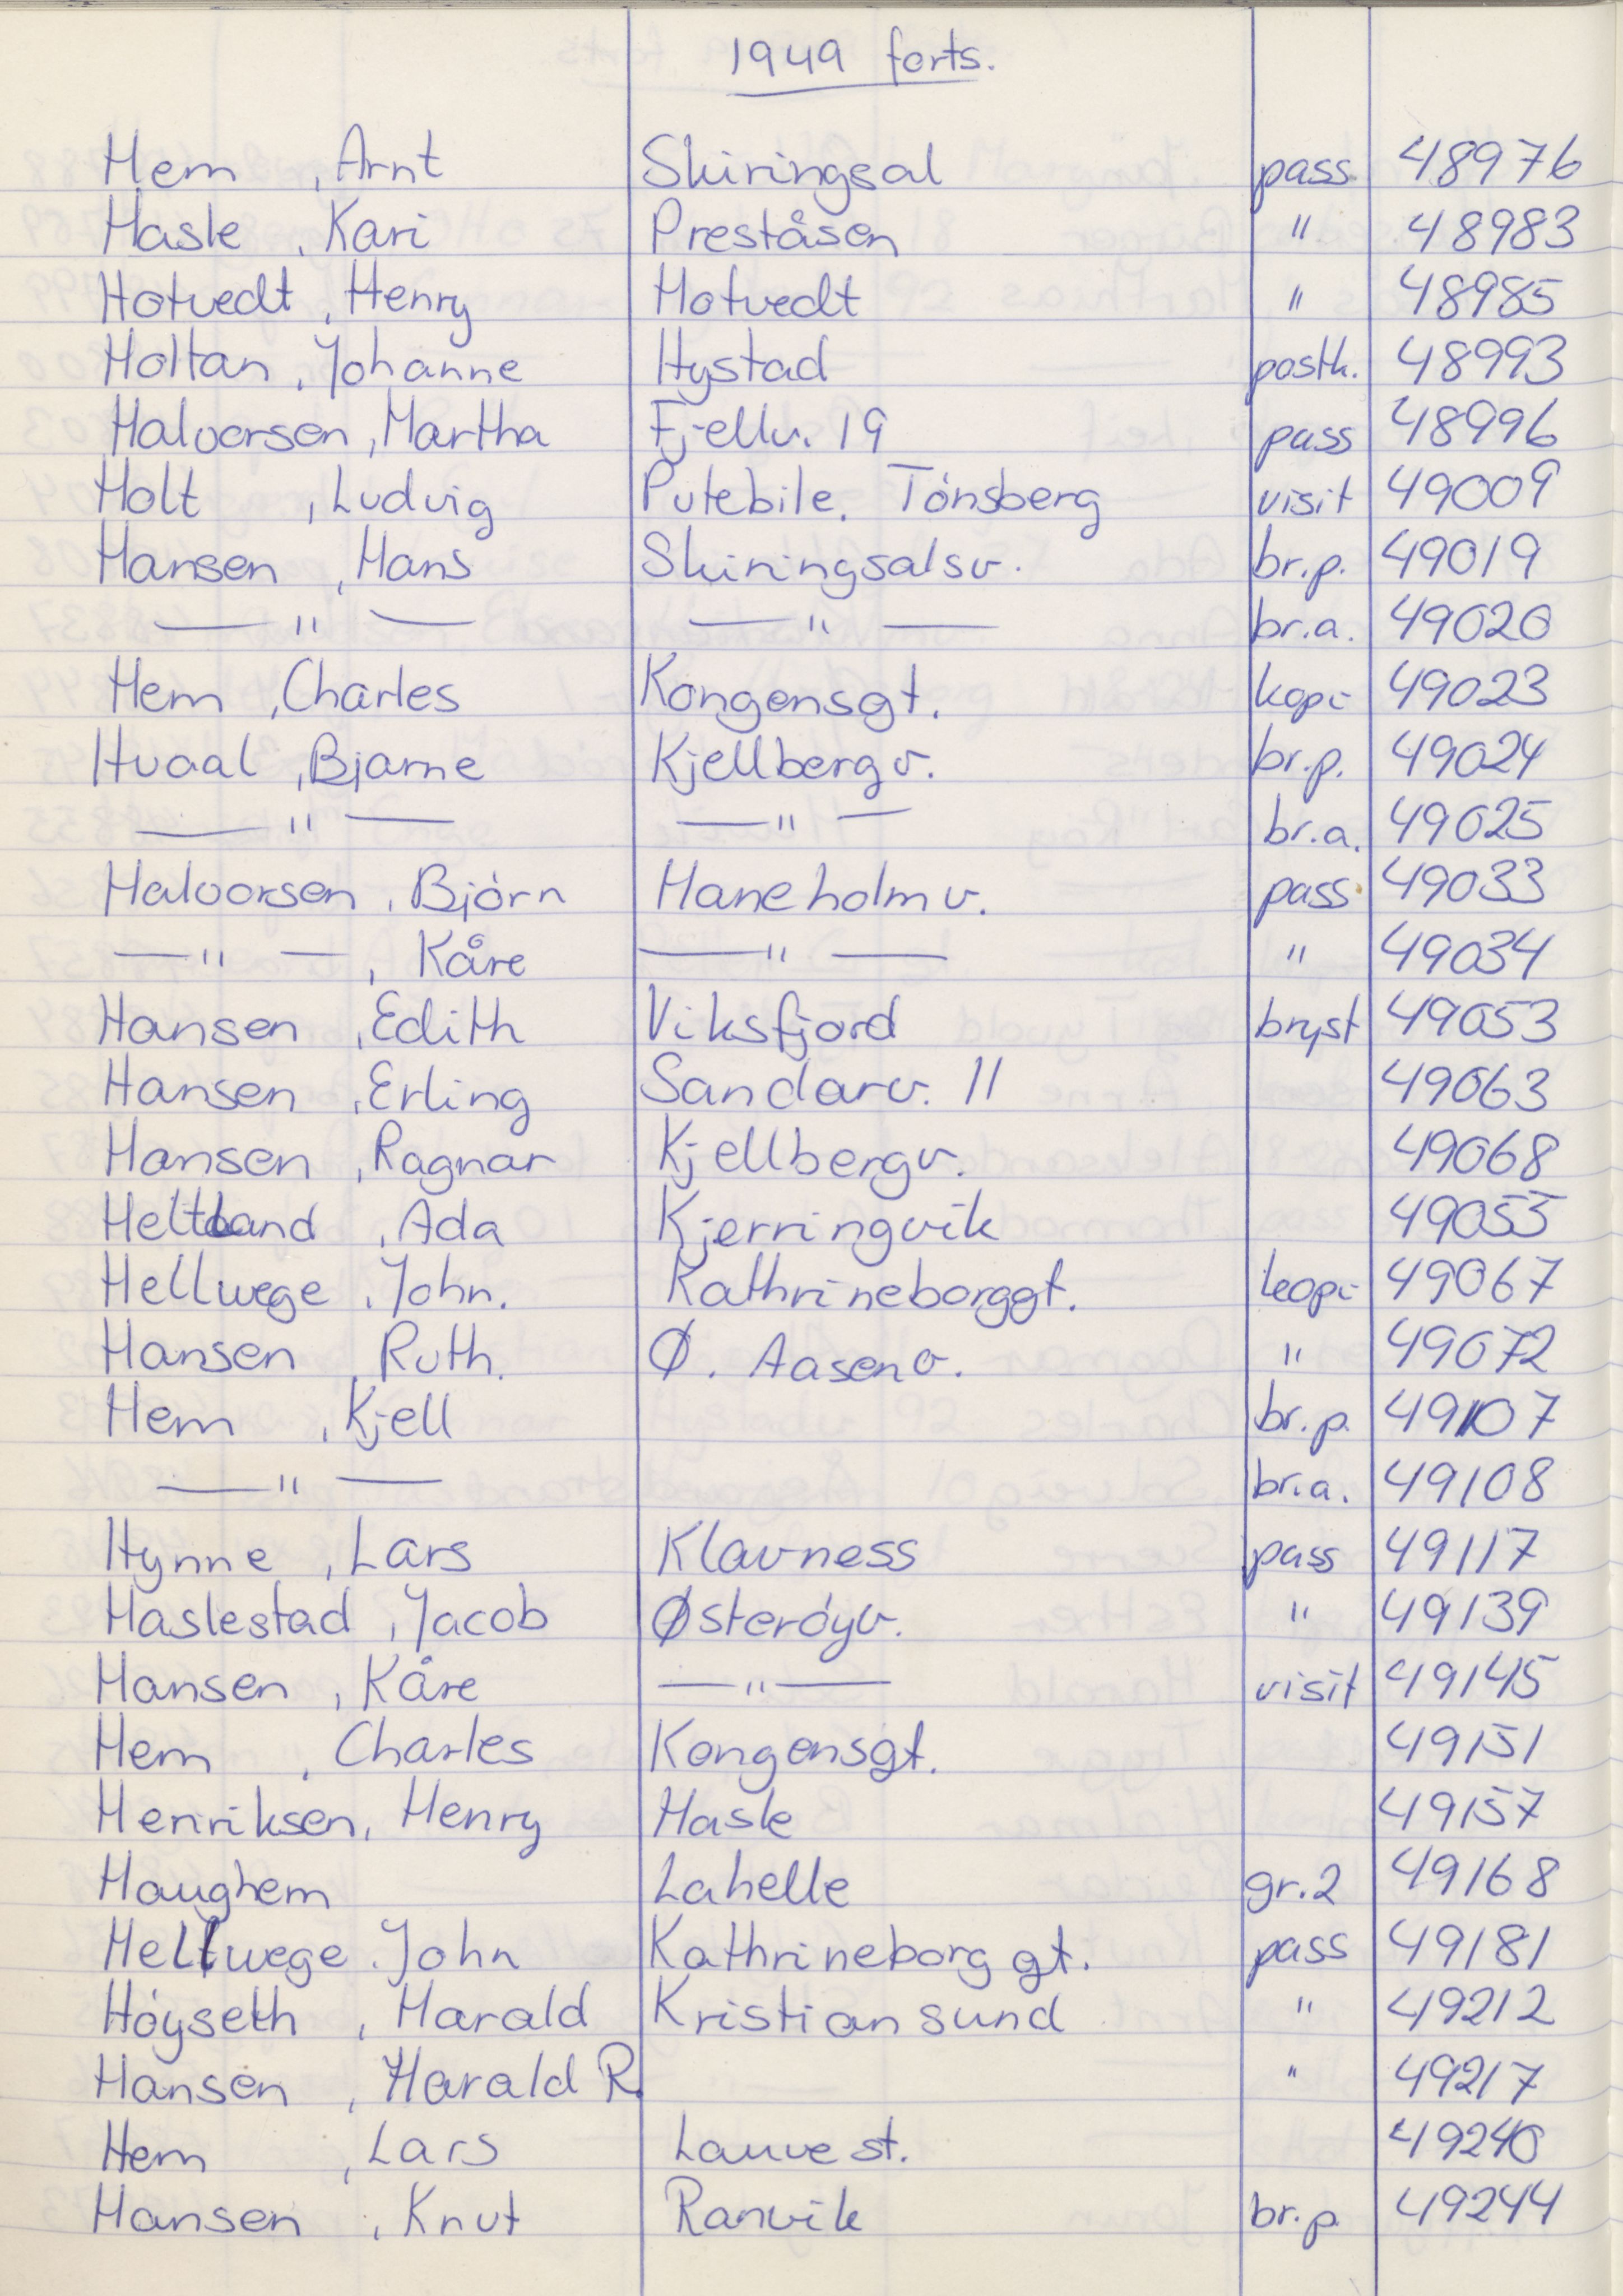 1949 forts.
Hem , Arnt Skiringsal pass 48976
Hasle , Kari Preståsen " 48983
Hotvedt , Henry Hotvedt " 48985
Holtan , Johanne Hystad postk. 48993
Halvorsen , Martha Fjellv. 19 pass 48996
Holt , Ludvig Putebile. Tönsberg visit 49009
Hansen , Hans Skiringsalsv. br.p. 49019
— " — — " — br.a. 49020
Hem , Charles Kongensgt. kopi 49023
Hvaal , Bjarne Kjellbergv. br.p. 49024
— " — — " — br.a. 49025
Halvorsen , Björn Haneholmv. pass 49033
— " — , Kåre — " — " 49034
Hansen , Edith Viksfjord bryst 49053
Hansen , Erling Sandarv. 11 49063
Hansen , Ragnar Kjellbergv. 49068
, Ada Kjerringvik 49055
Hellwege , John. Kathrineborggt. kopi 49067
Hansen , Ruth. Ø. Aasenv. " 49072
Hem , Kjell br.p. 49107
— " — br.a. 49108
Hynne , Lars Klavness pass 49117
Haslestad , Jacob Østeröyv. " 49139
Hansen , Kåre — " — visit 49145
Hem , Charles Kongensgt. 49151
Henriksen, Henry Hasle 49157
Haughem Lahelle gr.2 49168
Hellwege . John Kathrineborg gt. pass 49181
Höyseth , Harald Kristiansund " 49212
Hansen , Harald R. " 49217
Hem , Lars Lauve st. 49240
Hansen , Knut Ranvik br.p. 49244